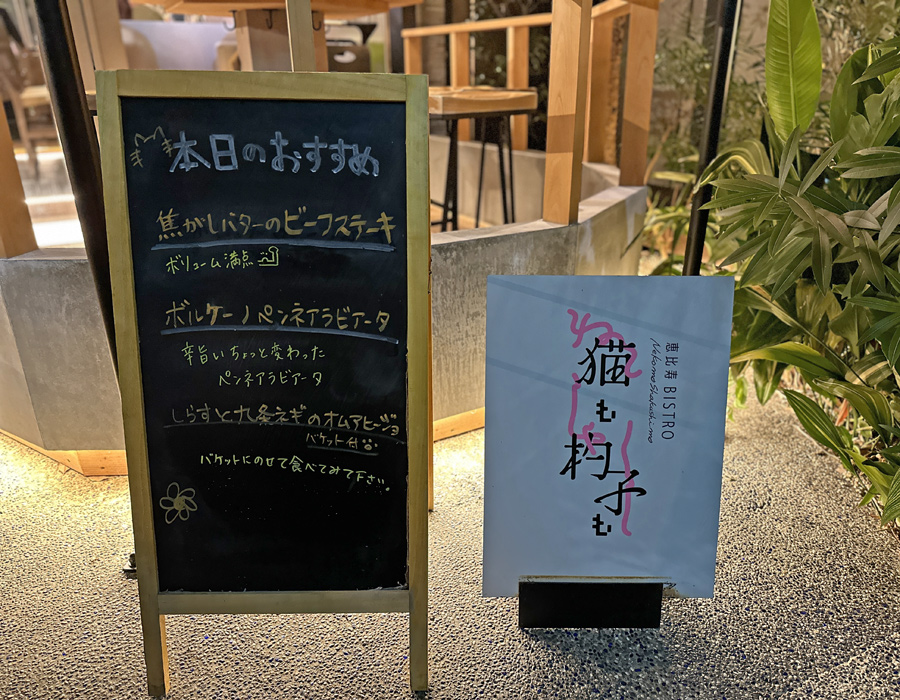 本日のおすすめ
焦がしバターのビーフステーキ
ボリューム満点
ボルケーノペンネアラビアータ
辛旨いちょっと変わった
ペンネアラビアータ
しらすと九条ネギのオムアヒージョ
バケット付
バケットにのせて食べてみて下さい。
恵比寿 BISTRO
Nekomo Shakushimo
猫も杓子も